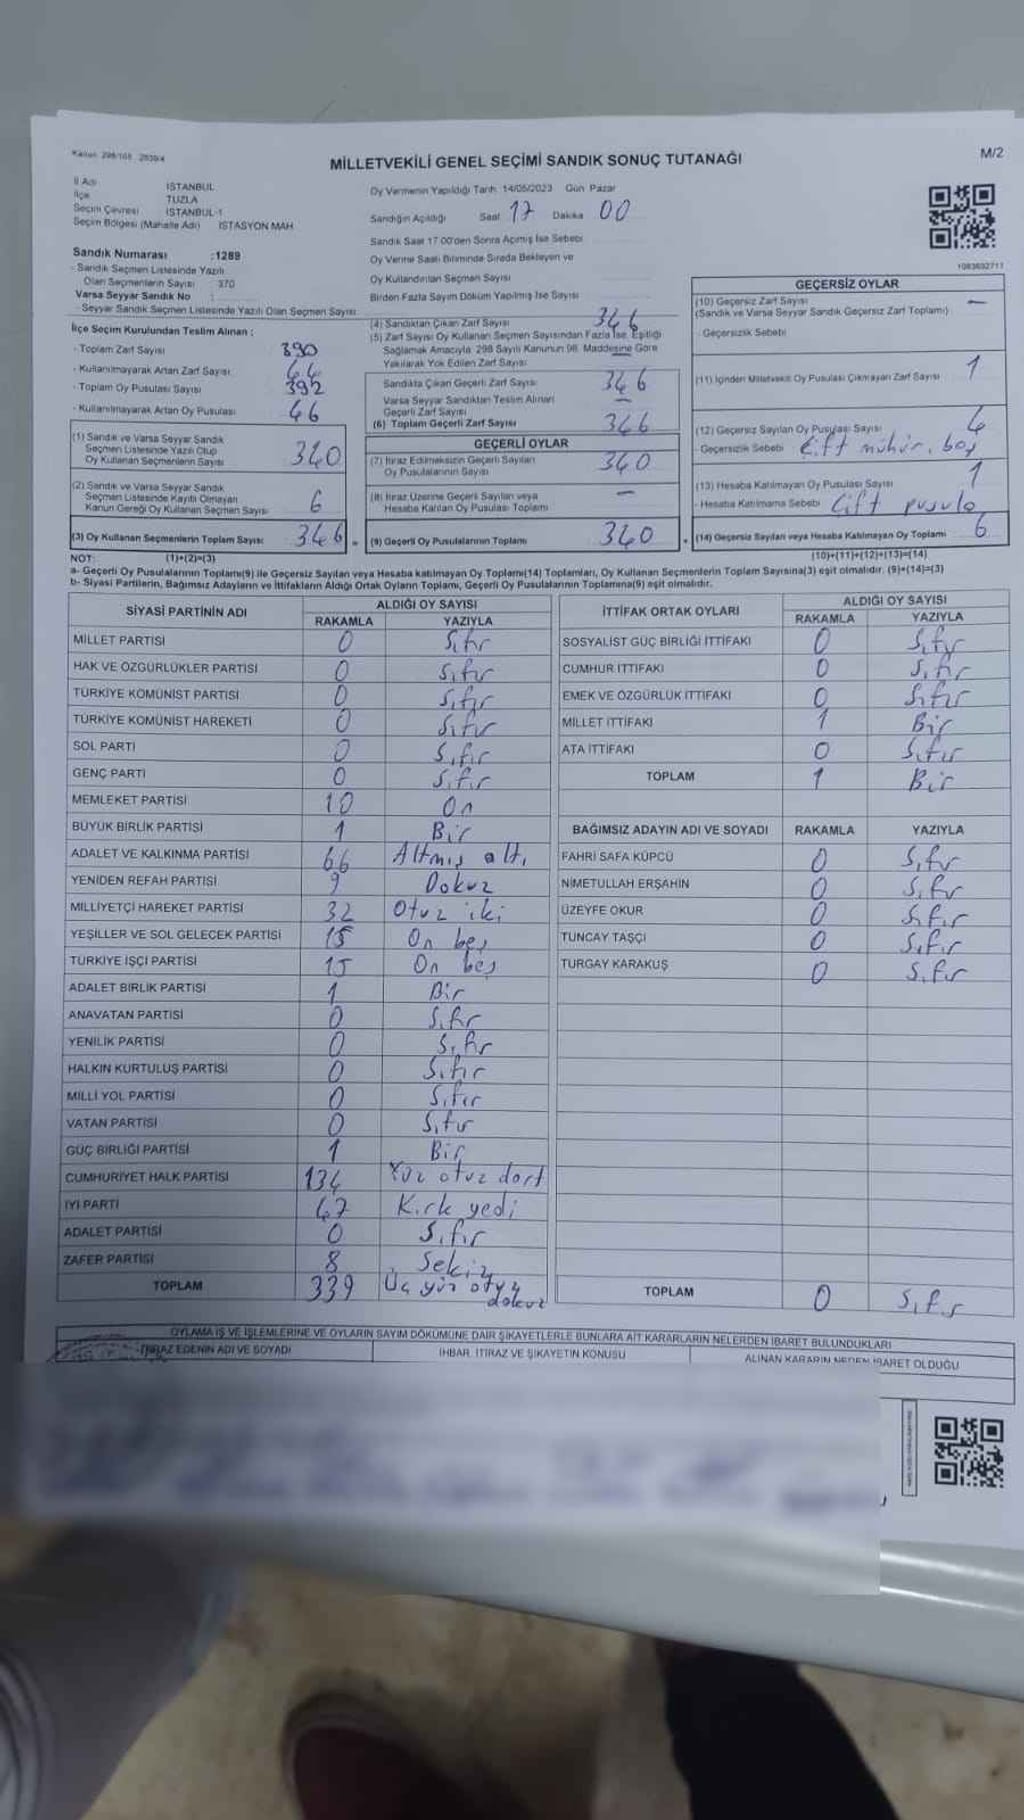 Kanun 298/105 2839/4
MİLLETVEKİLİ GENEL SEÇİMİ SANDIK SONUÇ TUTANAĞI
M/2
İl Adı İSTANBUL
İlçe TUZLA
Seçim Çevresi İSTANBUL-1
Seçim Bölgesi (Mahalle Adı) İSTASYON MAH
Sandık Numarası :1289
- Sandık Seçmen Listesinde Yazılı
Olan Seçmenlerin Sayısı 370
Varsa Seyyar Sandık No :
- Seyyar Sandık Seçmen Listesinde Yazılı Olan Seçmen Sayısı
Oy Vermenin Yapıldığı Tarih 14/05/2023 Gün Pazar
Sandığın Açıldığı Saat 17 Dakika 00
Sandık Saat 17.00'den Sonra Açılmış İse Sebebi
Oy Verme Saati Bitiminde Sırada Bekleyen ve
Oy Kullandırılan Seçmen Sayısı
Birden Fazla Sayım Döküm Yapılmış İse Sayısı
1083692711
İlçe Seçim Kurulundan Teslim Alınan :
- Toplam Zarf Sayısı 390
- Kullanılmayarak Artan Zarf Sayısı 44
- Toplam Oy Pusulası Sayısı 392
- Kullanılmayarak Artan Oy Pusulası 46
(1) Sandık ve Varsa Seyyar Sandık
Seçmen Listesinde Yazılı Olup
Oy Kullanan Seçmenlerin Sayısı 340
(2) Sandık ve Varsa Seyyar Sandık
Seçmen Listesinde Kayıtlı Olmayan
Kanun Gereği Oy Kullanan Seçmen Sayısı 6
(3) Oy Kullanan Seçmenlerin Toplam Sayısı 346 =
(4) Sandıktan Çıkan Zarf Sayısı 346
(5) Zarf Sayısı Oy Kullanan Seçmen Sayısından Fazla İse, Eşitliği
Sağlamak Amacıyla 298 Sayılı Kanunun 98. Maddesine Göre
Yakılarak Yok Edilen Zarf Sayısı
Sandıkta Çıkan Geçerli Zarf Sayısı 346
Varsa Seyyar Sandıktan Teslim Alınan
Geçerli Zarf Sayısı —
(6) Toplam Geçerli Zarf Sayısı 346
GEÇERLİ OYLAR
(7) İtiraz Edilmeksizin Geçerli Sayılan
Oy Pusulalarının Sayısı 340
(8) İtiraz Üzerine Geçerli Sayılan veya
Hesaba Katılan Oy Pusulası Toplamı —
(9) Geçerli Oy Pusulalarının Toplamı 340 +
GEÇERSİZ OYLAR
(10) Geçersiz Zarf Sayısı —
(Sandık ve Varsa Seyyar Sandık Geçersiz Zarf Toplamı)
Geçersizlik Sebebi
(11) İçinden Milletvekili Oy Pusulası Çıkmayan Zarf Sayısı 1
(12) Geçersiz Sayılan Oy Pusulası Sayısı 4
Geçersizlik Sebebi Çift mühür, boş
(13) Hesaba Katılmayan Oy Pusulası Sayısı 1
- Hesaba Katılmama Sebebi Çift pusula
(14) Geçersiz Sayılan veya Hesaba Katılmayan Oy Toplamı 6
NOT: (1)+(2)=(3) (10)+(11)+(12)+(13)=(14)
a- Geçerli Oy Pusulalarının Toplamı(9) ile Geçersiz Sayılan veya Hesaba katılmayan Oy Toplamı(14) Toplamları, Oy Kullanan Seçmenlerin Toplam Sayısına(3) eşit olmalıdır. (9)+(14)=(3)
b- Siyasi Partilerin, Bağımsız Adayların ve İttifakların Aldığı Ortak Oyların Toplamı, Geçerli Oy Pusulalarının Toplamına(9) eşit olmalıdır.
SİYASİ PARTİNİN ADI ALDIĞI OY SAYISI
RAKAMLA YAZIYLA
MİLLET PARTİSİ 0 Sıfır
HAK VE ÖZGÜRLÜKLER PARTİSİ 0 Sıfır
TÜRKİYE KOMÜNİST PARTİSİ 0 Sıfır
TÜRKİYE KOMÜNİST HAREKETİ 0 Sıfır
SOL PARTİ 0 Sıfır
GENÇ PARTİ 0 Sıfır
MEMLEKET PARTİSİ 10 On
BÜYÜK BİRLİK PARTİSİ 1 Bir
ADALET VE KALKINMA PARTİSİ 66 Altmış altı
YENİDEN REFAH PARTİSİ 9 Dokuz
MİLLİYETÇİ HAREKET PARTİSİ 32 Otuz iki
YEŞİLLER VE SOL GELECEK PARTİSİ 15 On beş
TÜRKİYE İŞÇİ PARTİSİ 15 On beş
ADALET BİRLİK PARTİSİ 1 Bir
ANAVATAN PARTİSİ 0 Sıfır
YENİLİK PARTİSİ 0 Sıfır
HALKIN KURTULUŞ PARTİSİ 0 Sıfır
MİLLİ YOL PARTİSİ 0 Sıfır
VATAN PARTİSİ 0 Sıfır
GÜÇ BİRLİĞİ PARTİSİ 1 Bir
CUMHURİYET HALK PARTİSİ 134 Yüz otuz dört
İYİ PARTİ 47 Kırk yedi
ADALET PARTİSİ 0 Sıfır
ZAFER PARTİSİ 8 Sekiz
TOPLAM 339 Üç yüz otuz dokuz
İTTİFAK ORTAK OYLARI ALDIĞI OY SAYISI
RAKAMLA YAZIYLA
SOSYALİST GÜÇ BİRLİĞİ İTTİFAKI 0 Sıfır
CUMHUR İTTİFAKI 0 Sıfır
EMEK VE ÖZGÜRLÜK İTTİFAKI 0 Sıfır
MİLLET İTTİFAKI 1 Bir
ATA İTTİFAKI 0 Sıfır
TOPLAM 1 Bir
BAĞIMSIZ ADAYIN ADI VE SOYADI RAKAMLA YAZIYLA
FAHRİ SAFA KÜPCÜ 0 Sıfır
NİMETULLAH ERŞAHİN 0 Sıfır
ÜZEYFE OKUR 0 Sıfır
TUNCAY TAŞÇI 0 Sıfır
TURGAY KARAKUŞ 0 Sıfır
TOPLAM 0 Sıfır
OYLAMA İŞ VE İŞLEMLERİNE VE OYLARIN SAYIM DÖKÜMÜNE DAİR ŞİKAYETLERLE BUNLARA AİT KARARLARIN NELERDEN İBARET BULUNDUKLARI
İTİRAZ EDENİN ADI VE SOYADI İHBAR, İTİRAZ VE ŞİKAYETİN KONUSU ALINAN KARARIN NEDEN İBARET OLDUĞU